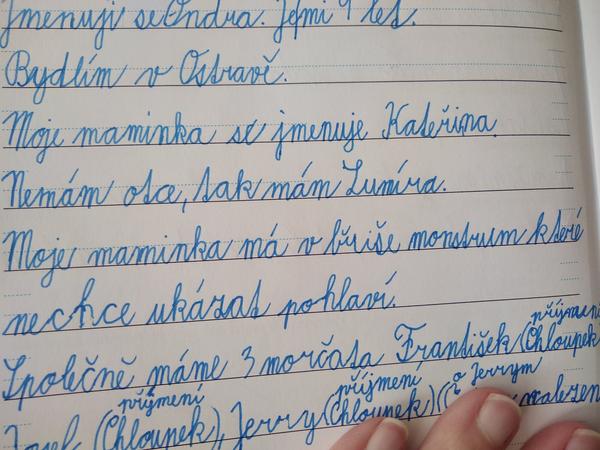 Jmenuji se Ondra. Je mi 9 let.
Bydlím v Ostravě.
Moje maminka se jmenuje Kateřina
Nemám otce, tak mám Lumíra.
Moje maminka má v břiše monstrum které
nechce ukázat pohlaví.
příjmení
Společně máme 3 morčata František (Chloupek
příjmení příjmení o Jerrym
Josef (Chloupek), Jerry (Chloupek) (